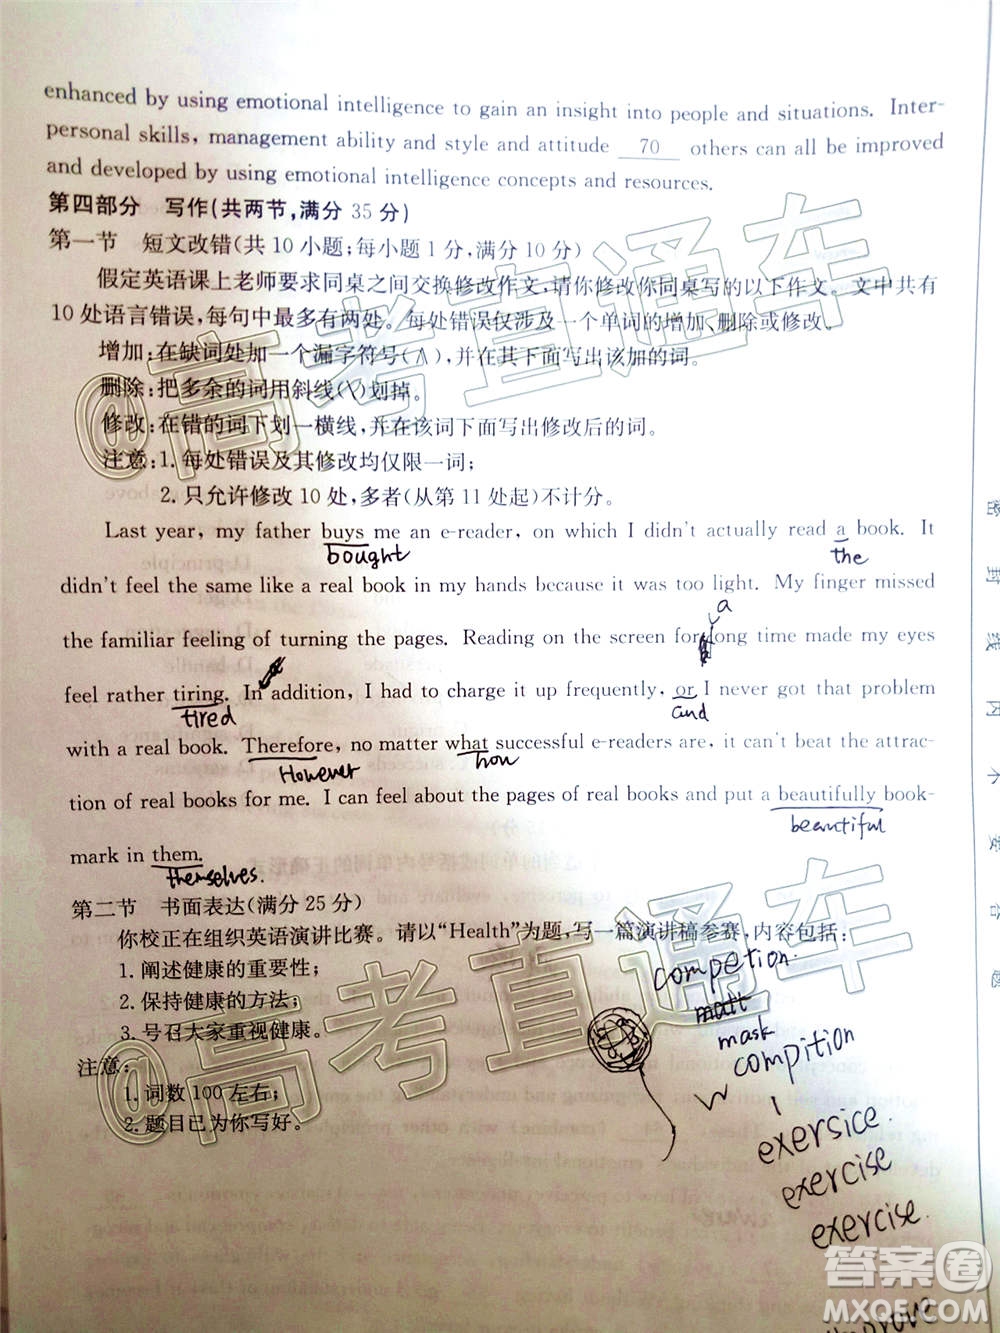 enhanced by using emotional intelligence to gain an insight into people and situations. Inter-
personal skills, management ability and style and attitude 70 others can all be improved
and developed by using emotional intelligence concepts and resources.
第四部分 写作(共两节,满分 35 分)
第一节 短文改错(共 10 小题;每小题 1 分,满分 10 分)
假定英语课上老师要求同桌之间交换修改作文,请你修改你同桌写的以下作文。文中共有
10 处语言错误,每句中最多有两处。每处错误仅涉及一个单词的增加、删除或修改。
增加:在缺词处加一个漏字符号(∧),并在其下面写出该加的词。
删除:把多余的词用斜线(\)划掉。
修改:在错的词下划一横线,并在该词下面写出修改后的词。
注意:1. 每处错误及其修改均仅限一词;
2. 只允许修改 10 处,多者(从第 11 处起)不计分。
Last year, my father buys me an e-reader, on which I didn't actually read a book. It
bought the
didn't feel the same like a real book in my hands because it was too light. My finger missed
a
the familiar feeling of turning the pages. Reading on the screen for long time made my eyes
feel rather tiring. In addition, I had to charge it up frequently, or I never got that problem
tired and
with a real book. Therefore, no matter what successful e-readers are, it can't beat the attrac-
However how
tion of real books for me. I can feel about the pages of real books and put a beautifully book-
beautiful
mark in them.
themselves.
第二节 书面表达(满分 25 分)
你校正在组织英语演讲比赛。请以"Health"为题,写一篇演讲稿参赛,内容包括:
1. 阐述健康的重要性;
2. 保持健康的方法;
3. 号召大家重视健康。
注意:
1. 词数 100 左右;
2. 题目已为你写好。
competion.
matt
mask
compition
exersice.
exercise
exercise.
@高考直通车
@高考直通车
密封线内不要答题
答案圈
MXQE.COM